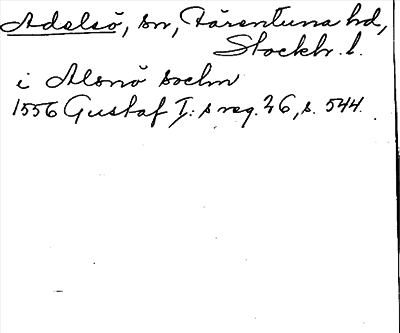 Adelsö, sn, Färentuna hd,
Stockh. l.
i Alsnö sochn
1556 Gustaf I:s reg. 26, s. 544.